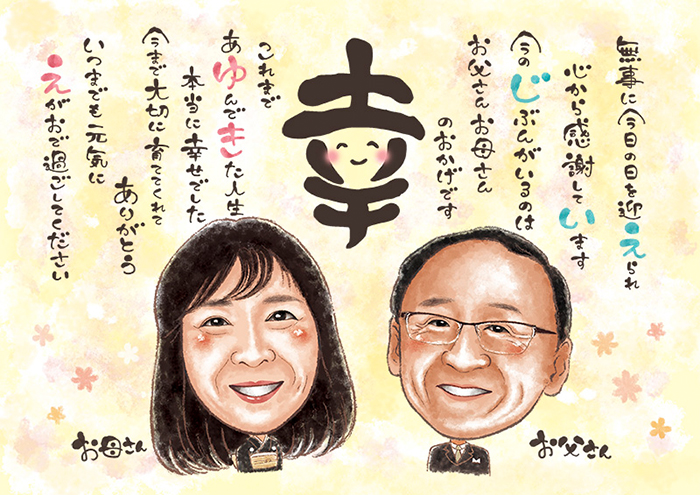 無事に今日の日を迎えられ
心から感謝しています
今のじぶんがいるのは
お父さんお母さん
のおかげです
幸
これまで
あゆんできた人生
本当に幸せでした
今まで大切に育ててくれて
ありがとう
いつまでも元気に
えがおで過ごしてください
お母さん
お父さん